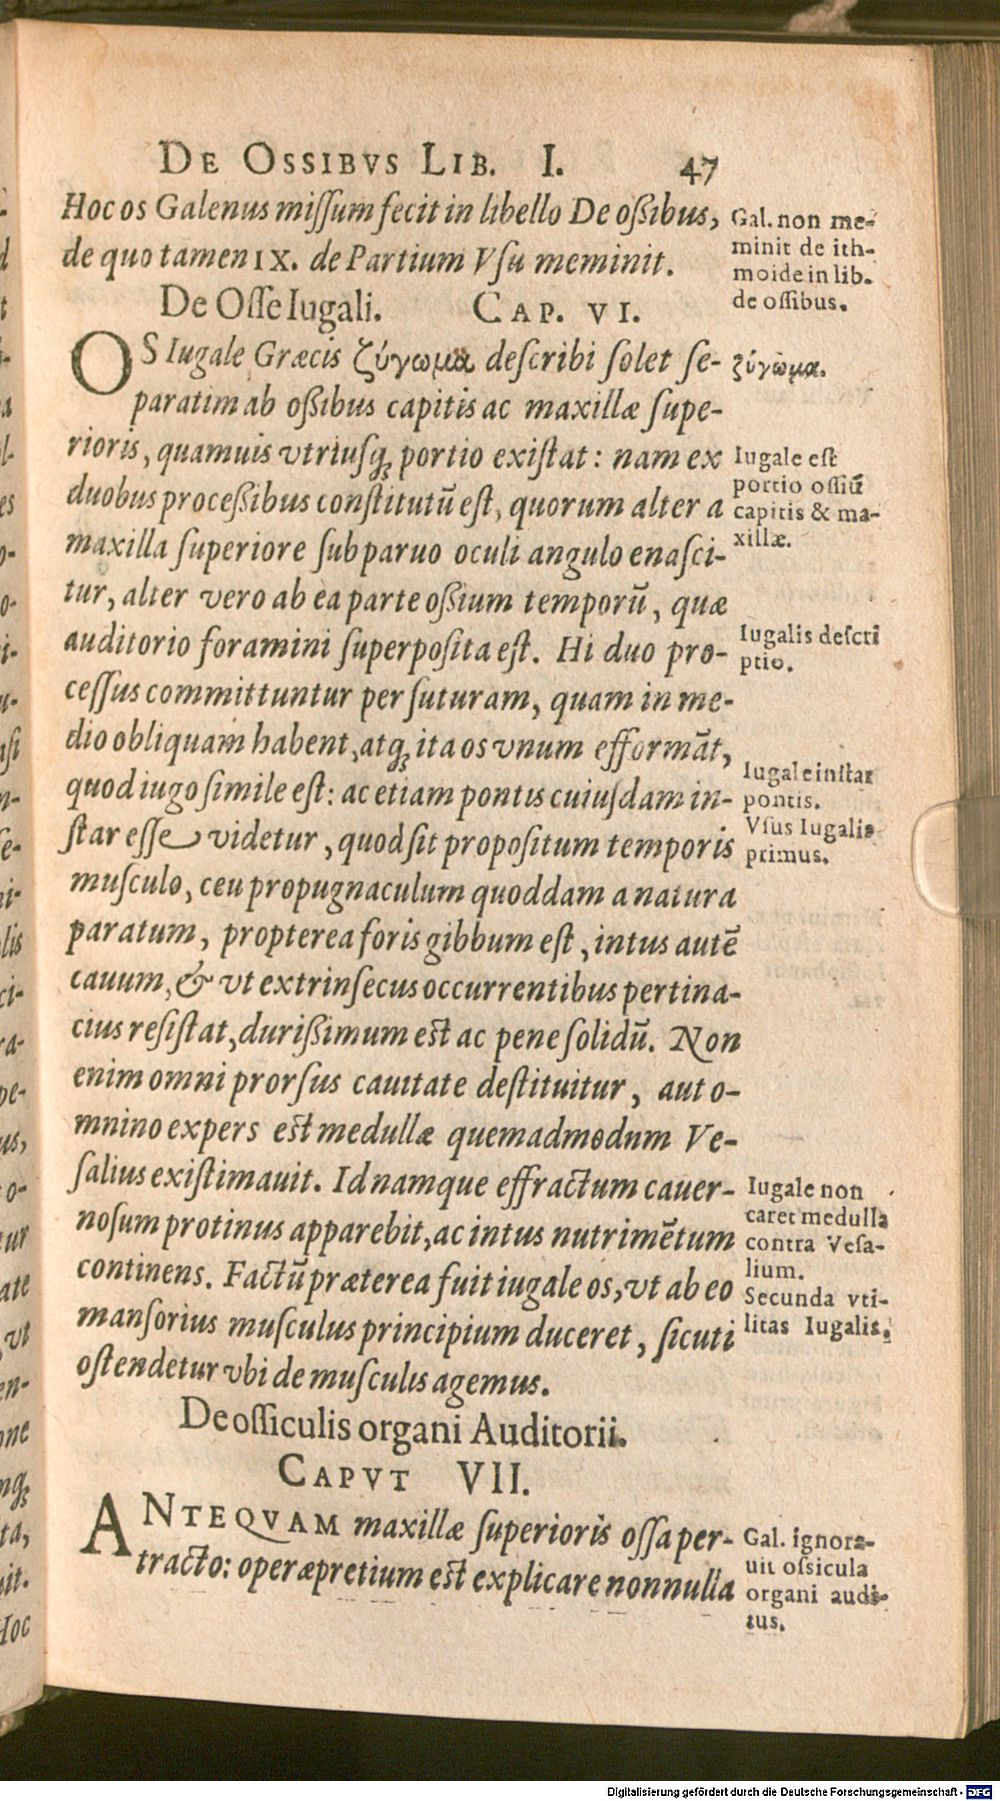 DE OSSIBVS LIB. I. 47
Hoc os Galenus missum fecit in libello De oßibus,
de quo tamen IX. de Partium Vsu meminit.
Gal. non me-
minit de ith-
moide in lib.
de ossibus.
De Osse Iugali. CAP. VI.
OS Iugale Græcis ζύγωμα describi solet se-
ζύγωμα.
paratim ab oßibus capitis ac maxillæ supe-
rioris, quamuis vtriusqꝫ portio existat: nam ex
duobus proceßibus constitutũ est, quorum alter a
maxilla superiore sub paruo oculi angulo enasci-
Iugale est
portio ossiũ
capitis & ma-
xillæ.
tur, alter vero ab ea parte oßium temporũ, quæ
auditorio foramini superposita est. Hi duo pro-
Iugalis descri
ptio.
cessus committuntur per suturam, quam in me-
dio obliquam habent, atqꝫ ita os vnum efformãt,
quod iugo simile est: ac etiam pontis cuiusdam in-
Iugale instar
pontis.
star esse videtur, quod sit propositum temporis
Vsus Iugalis
primus.
musculo, ceu propugnaculum quoddam a natura
paratum, propterea foris gibbum est, intus autẽ
cauum, & vt extrinsecus occurrentibus pertina-
cius resistat, durißimum est ac pene solidũ. Non
enim omni prorsus cauitate destituitur, aut o-
mnino expers est medullæ quemadmodum Ve-
salius existimauit. Id namque effractum cauer-
nosum protinus apparebit, ac intus nutrimẽtum
Iugale non
caret medulla
contra Vesa-
lium.
continens. Factũ præterea fuit iugale os, vt ab eo
mansorius musculus principium duceret, sicuti
Secunda vti-
litas Iugalis.
ostendetur vbi de musculis agemus.
De ossiculis organi Auditorii.
CAPVT VII.
ANTEQVAM maxillæ superioris ossa per-
tracto: operæpretium est explicare nonnulla
Gal. ignora-
uit ossicula
organi audi-
tus.
Digitalisierung gefördert durch die Deutsche Forschungsgemeinschaft - DFG